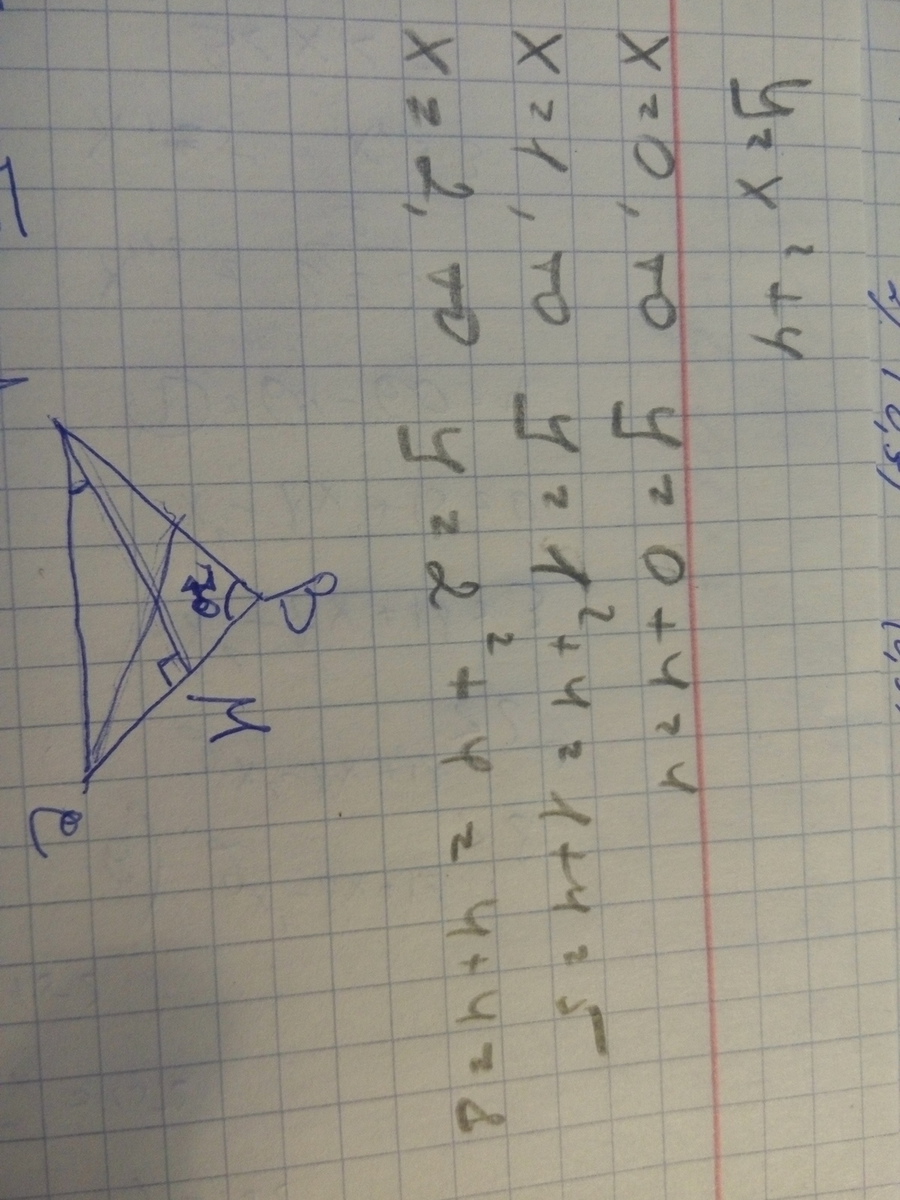 y = x² + 4
x = 0, то y = 0 + 4 = 4
x = 1, то y = 1² + 4 = 1 + 4 = 5
x = 2, то y = 2² + 4 = 4 + 4 = 8
B
M
C